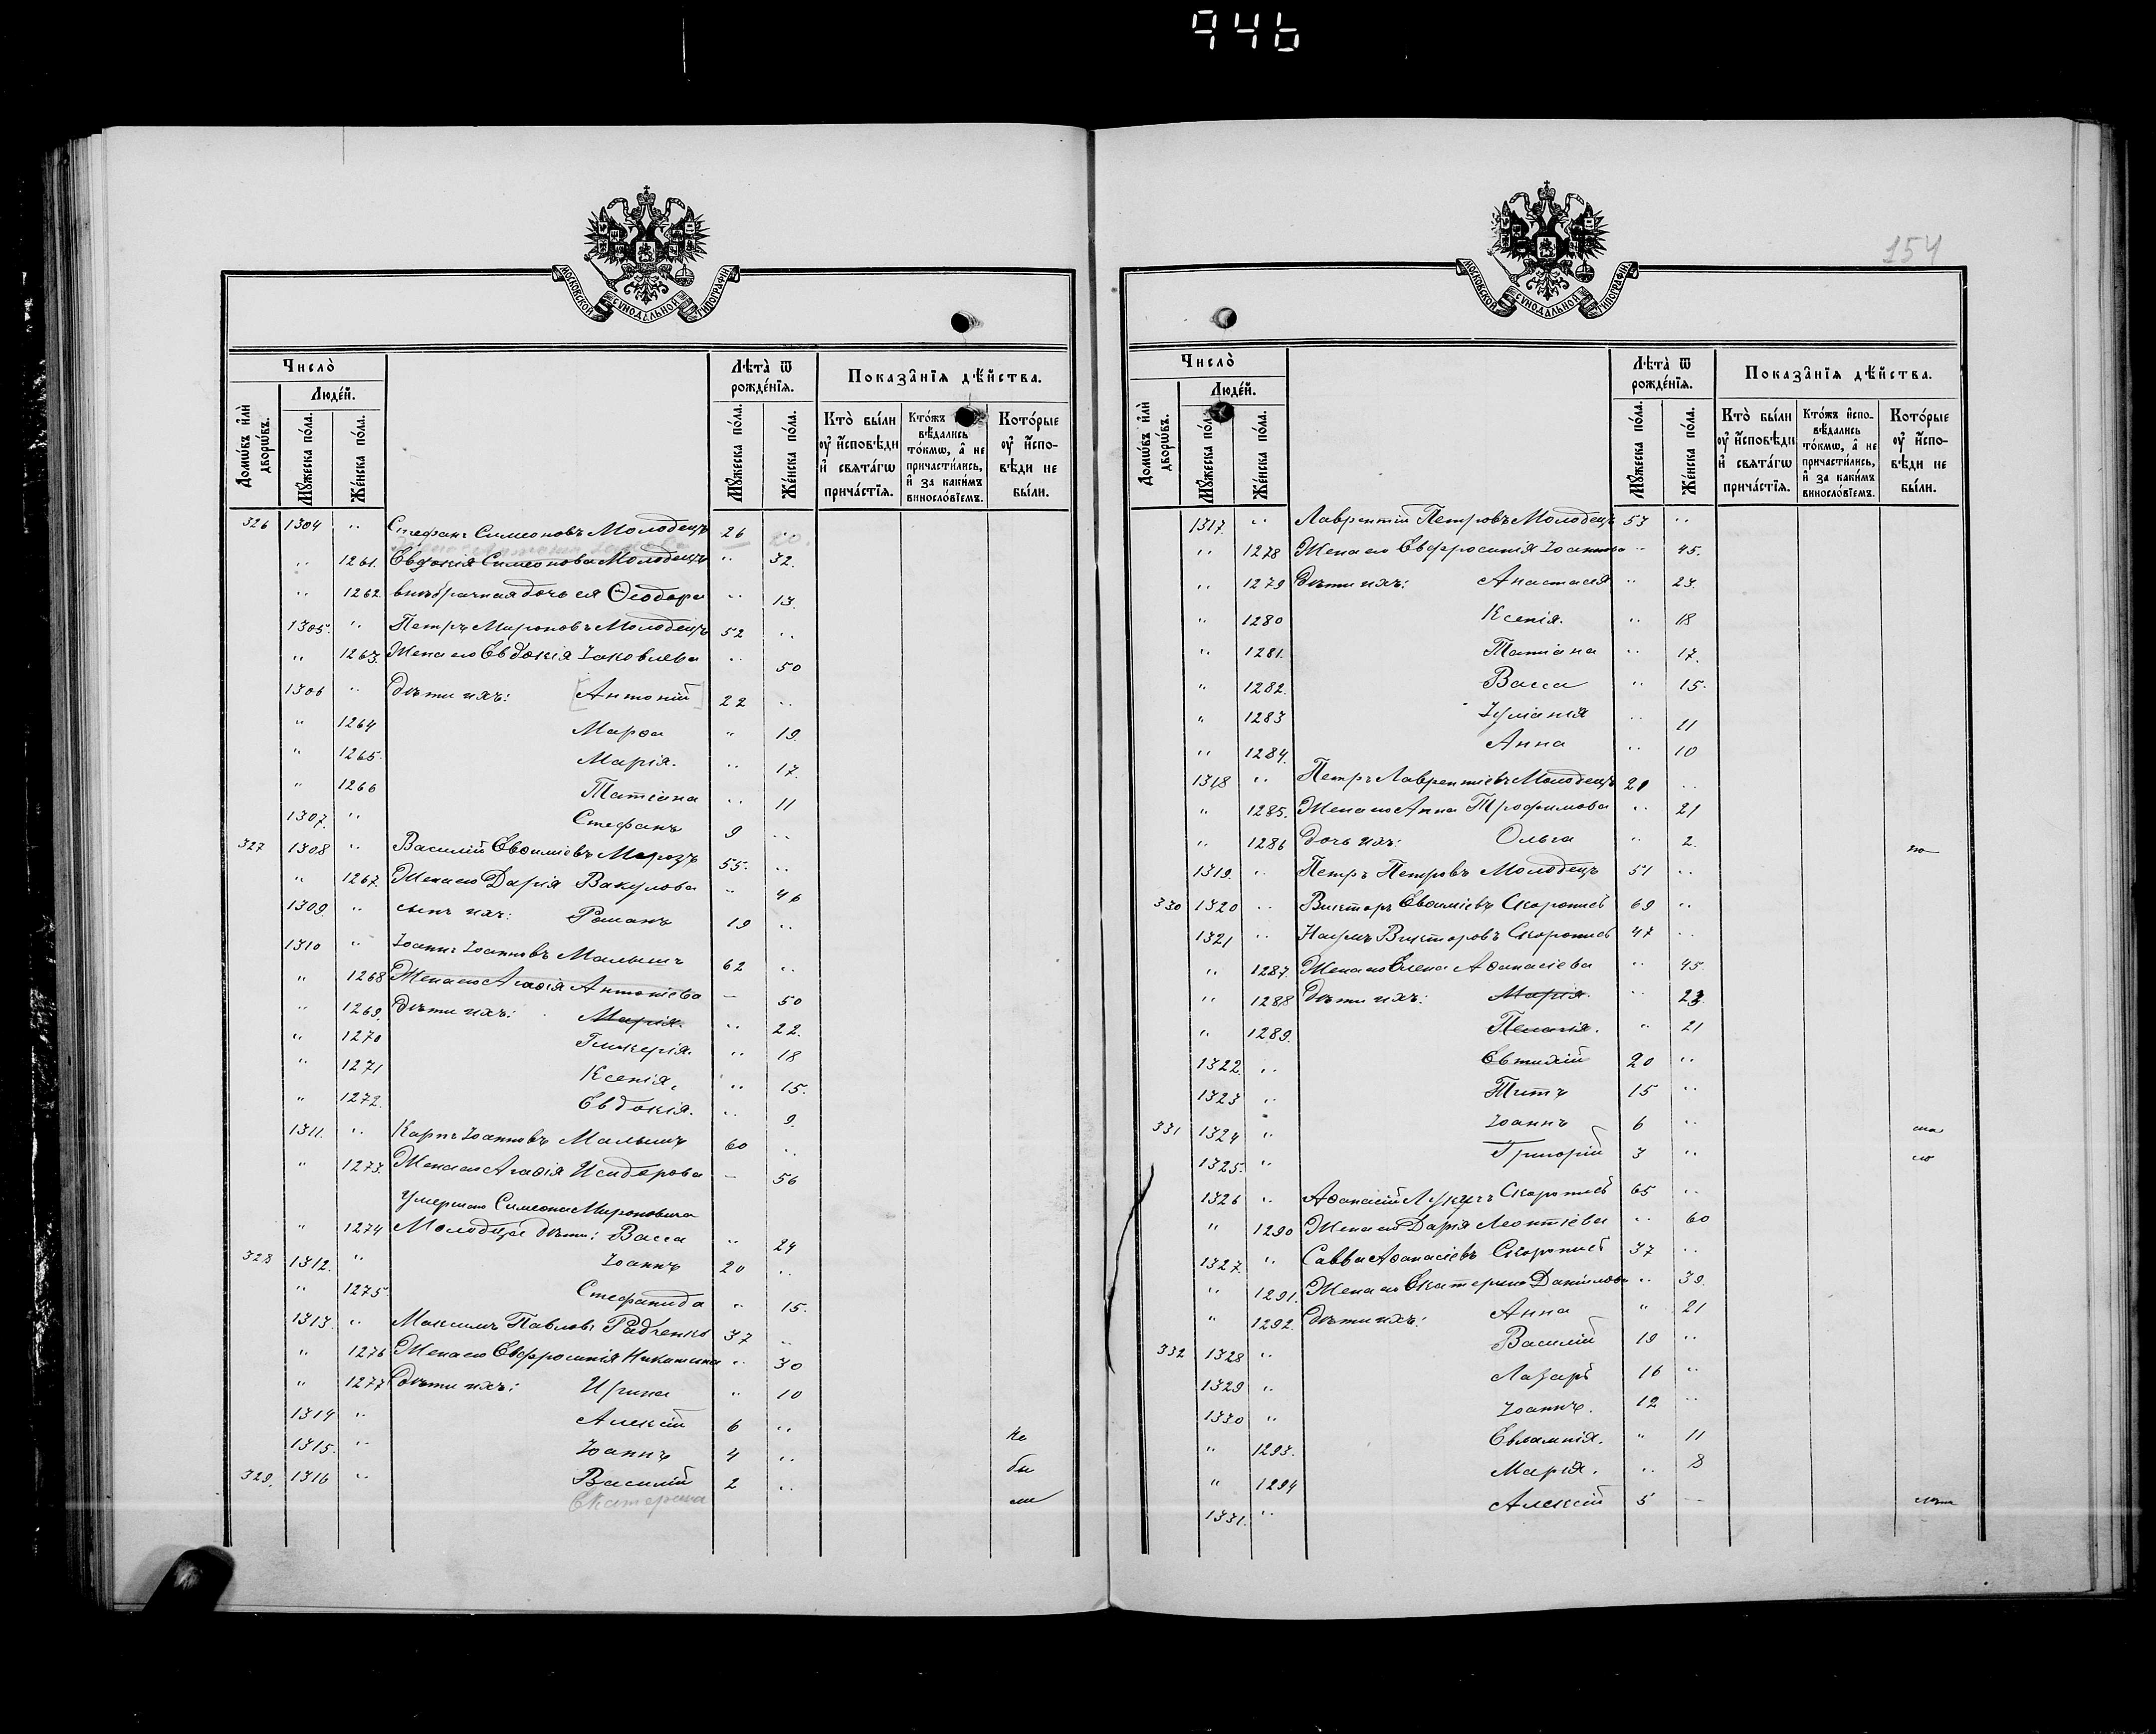 946
МОСКОВСКОЙ СѴНОДАЛЬНОЙ ТИПОГРАФІИ
Число̀
Лѣта̀ ѿ рожде́нїѧ.
Показа̑нїѧ дѣ́йства.
Домѡ́въ и҆лѝ дворѡ́въ.
Люде́й.
Мꙋ́жеска по́ла.
Же́нска по́ла.
Мꙋ́жеска по́ла.
Же́нска по́ла.
Кто̀ бы́ли оу҆ и҆сповѣ́ди и҆ свѧта́гѡ прича́стїѧ.
Кто́жъ вѣ́дались то́кмѡ, а҆ не причасти́лись, и҆ за каки́мъ винослоⷡ́їемъ.
Кото́рые оу҆ и҆спо-вѣ́ди не бы́ли.
326 1304 " Стефанъ Симеоновъ Молодецъ 26 "
20.
" 1261. Евдокія Симеонова Молодецъ " 32.
" 1262 внѣбрачная дочь ея Ѳеодора " 13.
1305. " Петръ Мироновъ Молодецъ 52 "
" 1263. Жена его Евдокія Іаковлева " 50
1306 " Дѣти ихъ: [Антоній] 22 "
" 1264 Марѳа " 19.
" 1265. Марія. " 17.
" 1266 Татіана " 11
1307. " Стефанъ 9 "
327 1308 " Василій Евѳиміевъ Морозъ 55. "
" 1267. Жена его Дарія Вакулова " 46
1309. " сынъ ихъ: Романъ 19 "
1310 " Іоаннъ Іоанновъ Малышъ 62 "
" 1268 Жена его Агаѳія Антоніева — 50
" 1269. Дѣти ихъ: Марія. " 22.
" 1270 Гликерія. " 18
" 1271 Ксенія. " 15.
" 1272. Евдокія. " 9.
1311. " Карпъ Іоанновъ Малышъ 60 "
" 1273. Жена его Агаѳія Исидорова — 56
Умершаго Симеона Мироновича
" 1274 Молодца дѣти: Васса " 24
328 1312. " Іоаннъ 20 "
" 1275. Стефанида " 15.
1313. " Максимъ Павловъ Радченко 37 "
" 1276 Жена его Евфросинія Никитина " 30
" 1277 Дѣти ихъ: Ирина " 10
1314 " Алексій 6 " не
1315. " Іоаннъ 4 " бы
329. 1316 " Василій 2 " ли
Екатерина
154
МОСКОВСКОЙ СѴНОДАЛЬНОЙ ТИПОГРАФІИ
Число̀
Лѣта̀ ѿ рожде́нїѧ.
Показа̑нїѧ дѣ́йства.
Домѡ́въ и҆лѝ дворѡ́въ.
Люде́й.
Мꙋ́жеска по́ла.
Же́нска по́ла.
Мꙋ́жеска по́ла.
Же́нска по́ла.
Кто̀ бы́ли оу҆ и҆сповѣ́ди и҆ свѧта́гѡ прича́стїѧ.
Кто́жъ и҆спо-вѣ́дались то́кмѡ, а҆ не причасти́лись, и҆ за каки́мъ винослоⷡ́їемъ.
Кото́рые оу҆ и҆спо-вѣ́ди не бы́ли.
1317. " Лаврентій Петровъ Молодецъ 53 "
" 1278 Жена его Евфросинія Іоаннова " 45.
" 1279 Дѣти ихъ: Анастасія " 23.
" 1280 Ксенія. " 18
" 1281. Татіана " 17.
" 1282. Васса " 15.
" 1283 Іуліанія " 11
" 1284. Анна " 10
1318 " Петръ Лаврентіевъ Молодецъ 20 "
" 1285. Жена его Анна Трофимова " 21
" 1286 дочь ихъ: Ольга " 2.
1319. " Петръ Петровъ Молодецъ 51 "
330 1320 " Викторъ Евѳиміевъ Скорописъ 69 "
1321 " Наумъ Викторовъ Скорописъ 47 "
" 1287. Жена его Елена Аѳанасіева " 45.
" 1288 Дѣти ихъ: Марія. " 23.
" 1289. Пелагія. " 21
1322. " Евтихій 20 "
1323 " Титъ 15 "
331 1324 " Іоаннъ 6 "
1325. " Григорій 3 "
1326 " Аѳанасій Лукичъ Скорописъ 65 "
" 1290 Жена его Дарія Леонтіева " 60
1327. " Савва Аѳанасіевъ Скорописъ 37 "
" 1291. Жена его Екатерина Даніилова " 39.
" 1292. Дѣти ихъ: Анна " 21
332 1328 " Василій 19 "
1329 " Лазарь 16 "
1330 " Іоаннъ. 12 "
" 1293. Евлампія. " 11
" 1294 Марія. " 8
1331. " Алексій 5 —